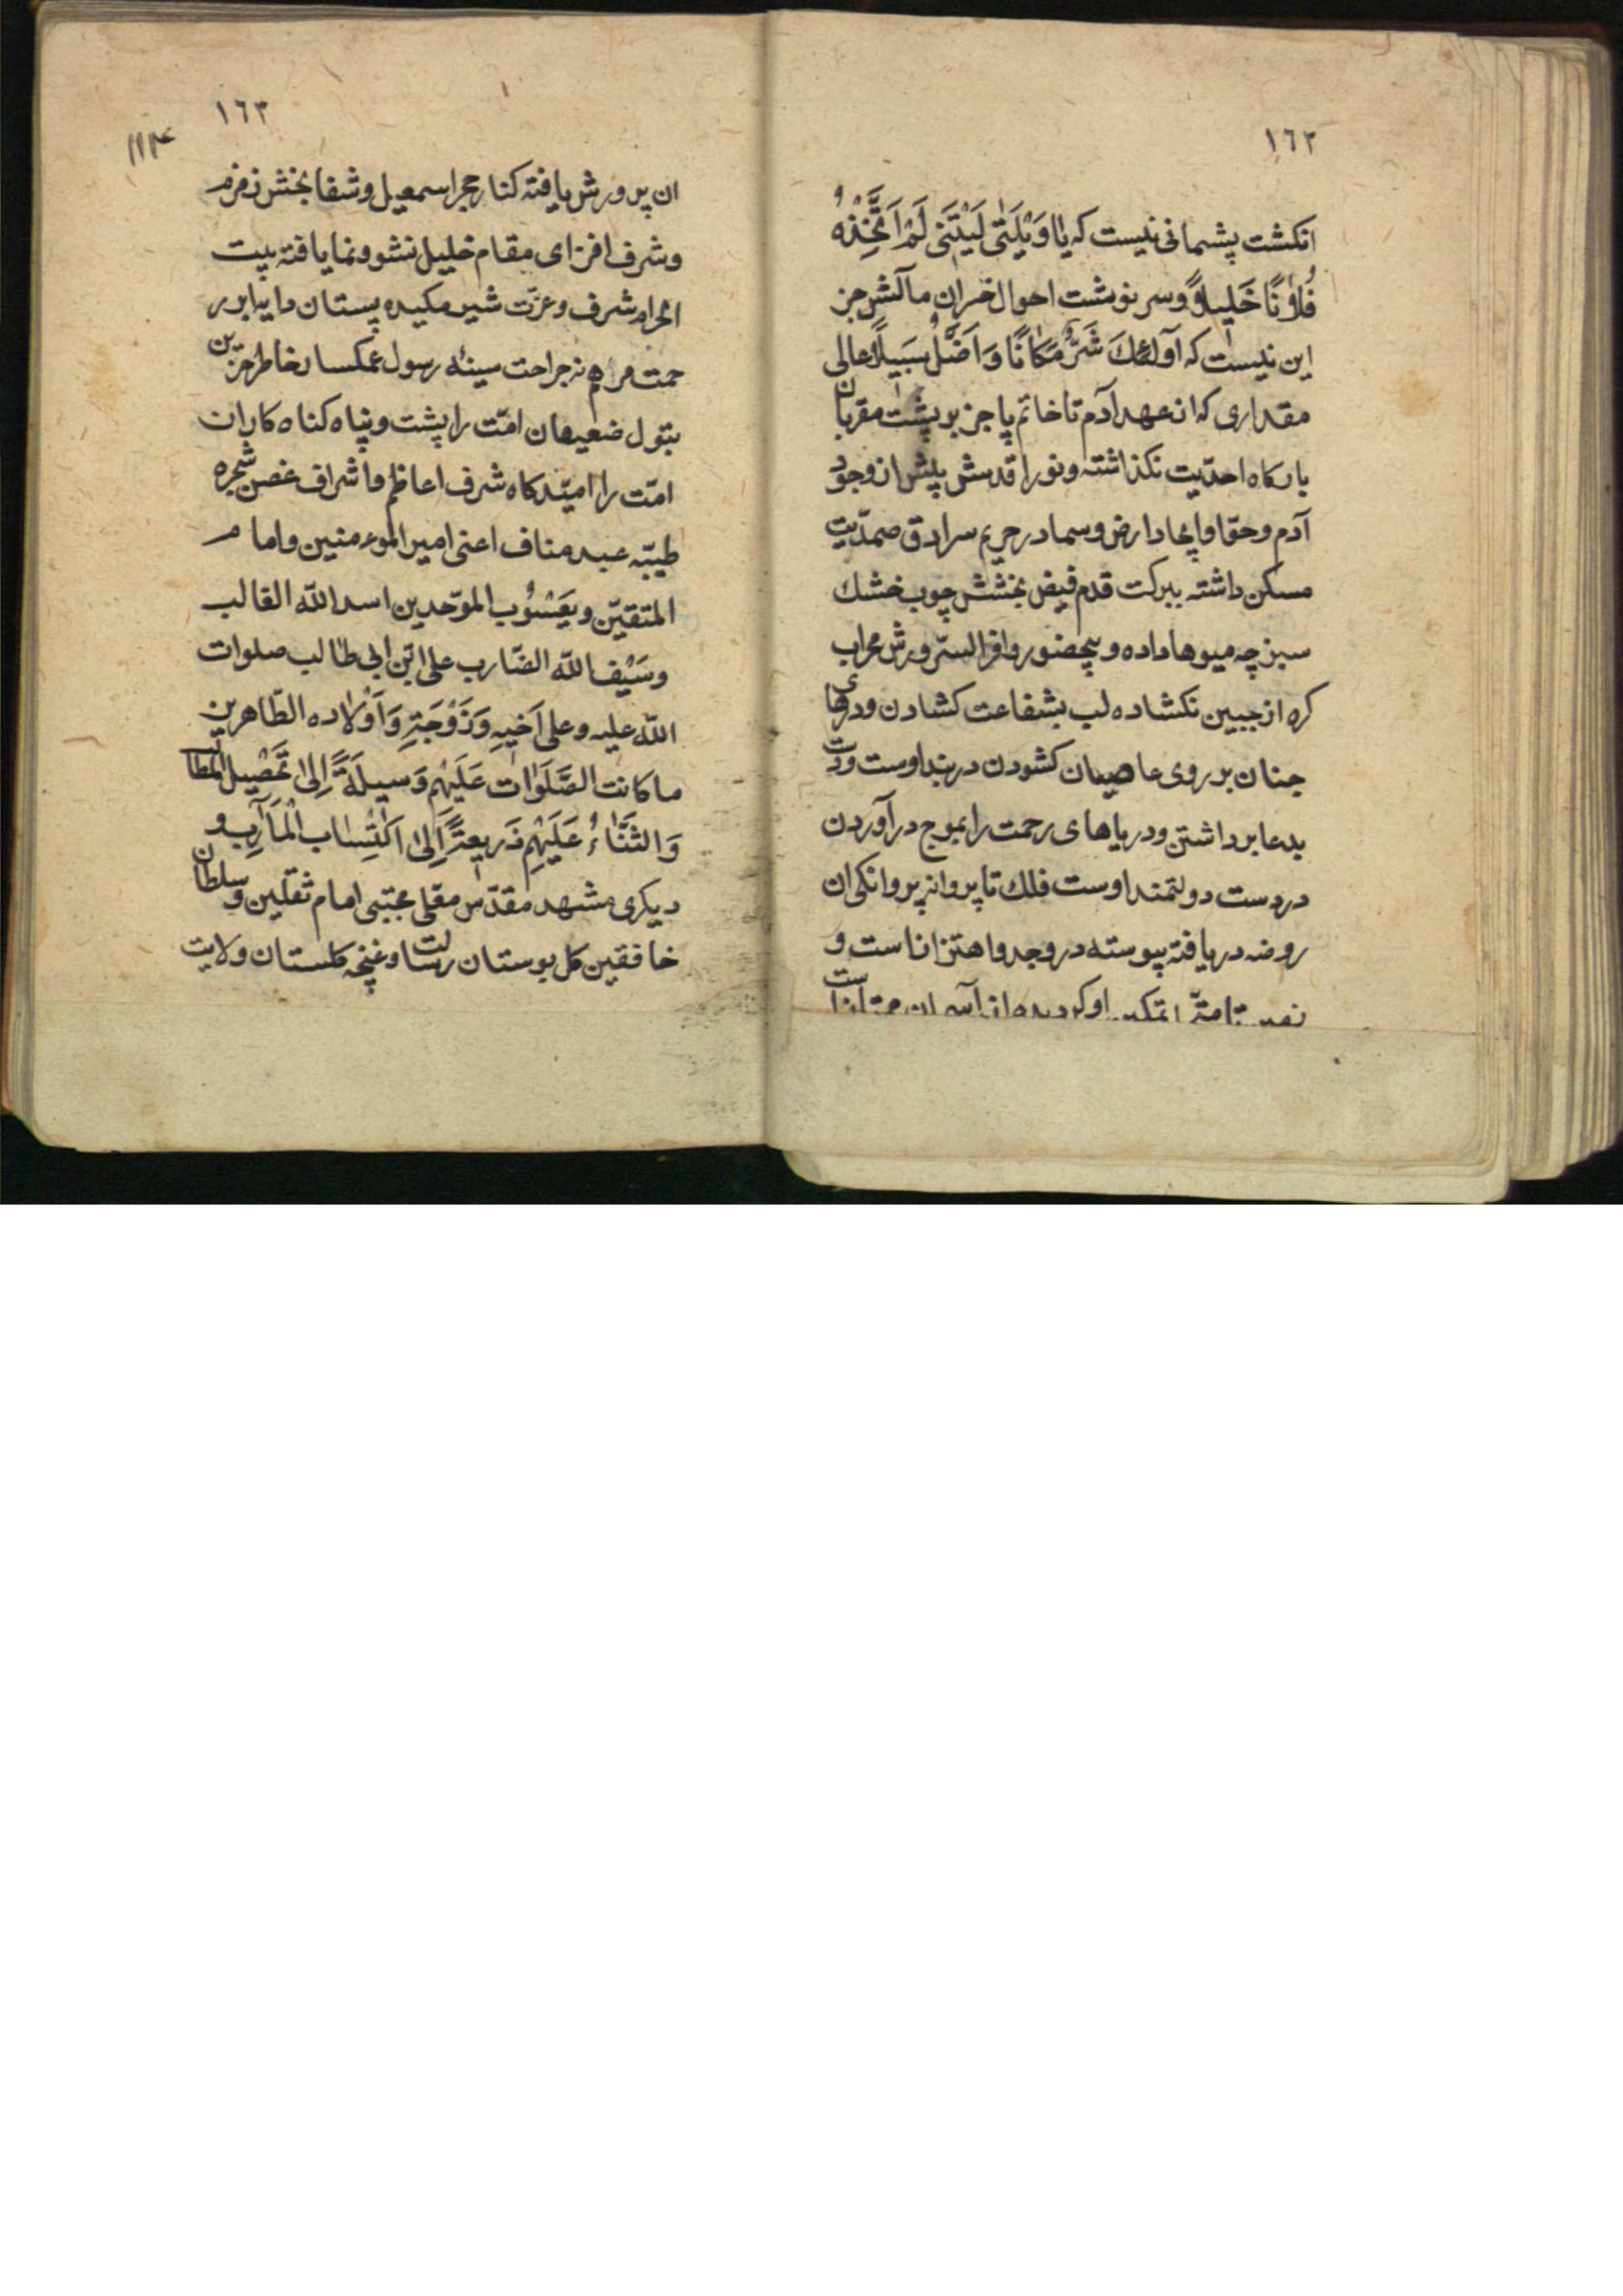 ١٦٢
انکشت پشیمانی نیست که یٰا وَیْلَتٰی لَیْتَنی لَمْ اَتَّخِذْهُ
فُلاٰنًا خَلِیلاً وسر نوشت احوال خسران مآلش جز
این نیست که آولٰئِكَ شَرٌّ مَکٰانًا وَ اَضَلُّ سَبَیلًا عالی
مقداری که از عهد آدم تا خاتم پا جز بر پشت مقربان
بارکاه احدّیت نکذاشته ونور اقدسش پیش از وجود
آدم وحوّا وایجاد ارض وسما در حریم سرادق صمدّیت
مسکن داشته ببرکت قدم فیض بخشش چوب خشك
سبز چه میوها داده و بحضور وافر السّرورش محراب
کره از جبین نکشاده لب بشفاعت کشادن ودرهای
جنان بر روی عاصیان کشودن در بند اوست ودست
بدعا برداشتن ودریاهای رحمت را بموج در آوردن
در دست دولتمند اوست فلك تا پروانه پروانکی ان
روضه دریافته پیوسته در وجد واهتزاز است و
١٦٣
۱۱۴
ان پرورش یافته کنار حجر اسمعیل وشفا بخش زمزم
وشرف افزای مقام خلیل نشو ونما یافته بیت
الحرام شرف وعزّت شیر مکیده پستان دایه ابر ر
حمت مرهم نه جراحت سینهٔ رسول غمکسار خاطر حزین
بتول ضعیفان امّت را پشت وپناه کناه کاران
امّت را امیّدکاه شرف اعاظم واشراف غصن شجره
طیبّه عبد مناف اعنی امیر الموءمنین وامام
المتقیّن ویَعْسُوُب الموّحدین اسد اللّه الغالب
وسَیْف اللّه الضّارب علی ابن ابی طٰالب صلوات
اللّه علیه وعلی اَخیهِ وَزَوْجَتِهِ وَاَوْلاٰده الطّاهرین
ما کانت الصَّلَوٰات عَلَیْهِم وَسیلَةً اِلیٰ تَحْصیل المطالب
وَالثَّنٰاءُ عَلَیْهِم ذَریعَةً اِلیٰ اکْتِسٰاب الْمَآرِب و
دیکری مشهد مقدّس معّلی مجتبی امام ثقلین وسلطان
خافقین کل بوستان رسالت وغنچه کلستان ولایت